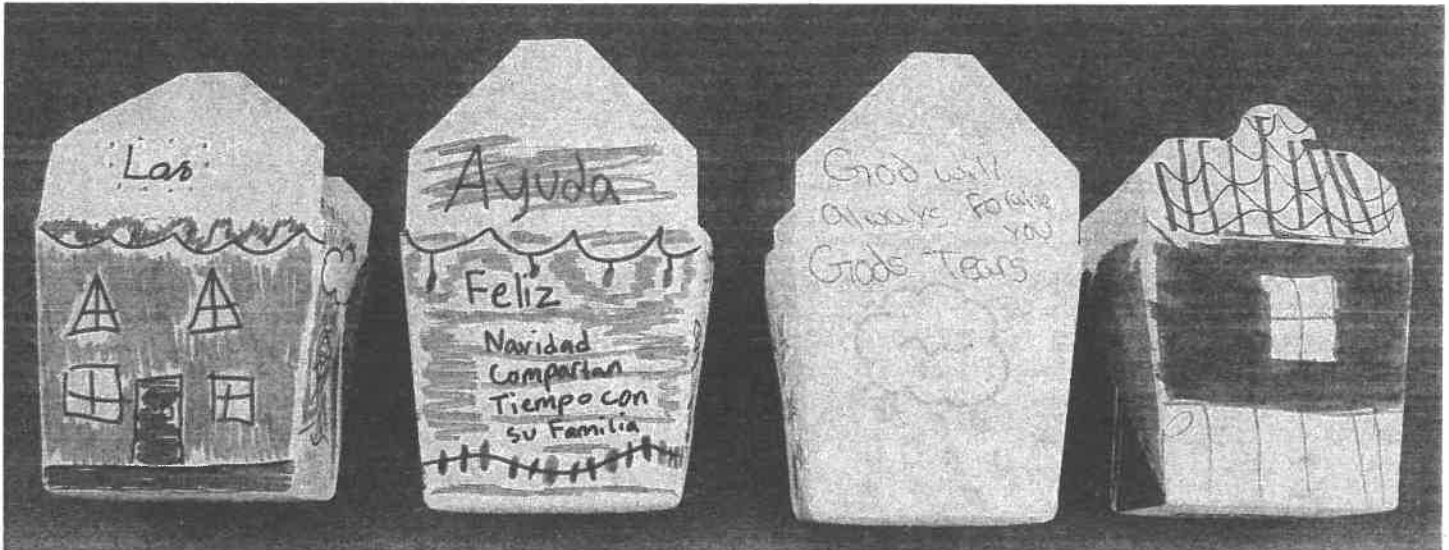 Las
Ayuda
Feliz
Navidad
Compartan
Tiempo con
su Familia
God will
always Forgive
you
Gods Tears